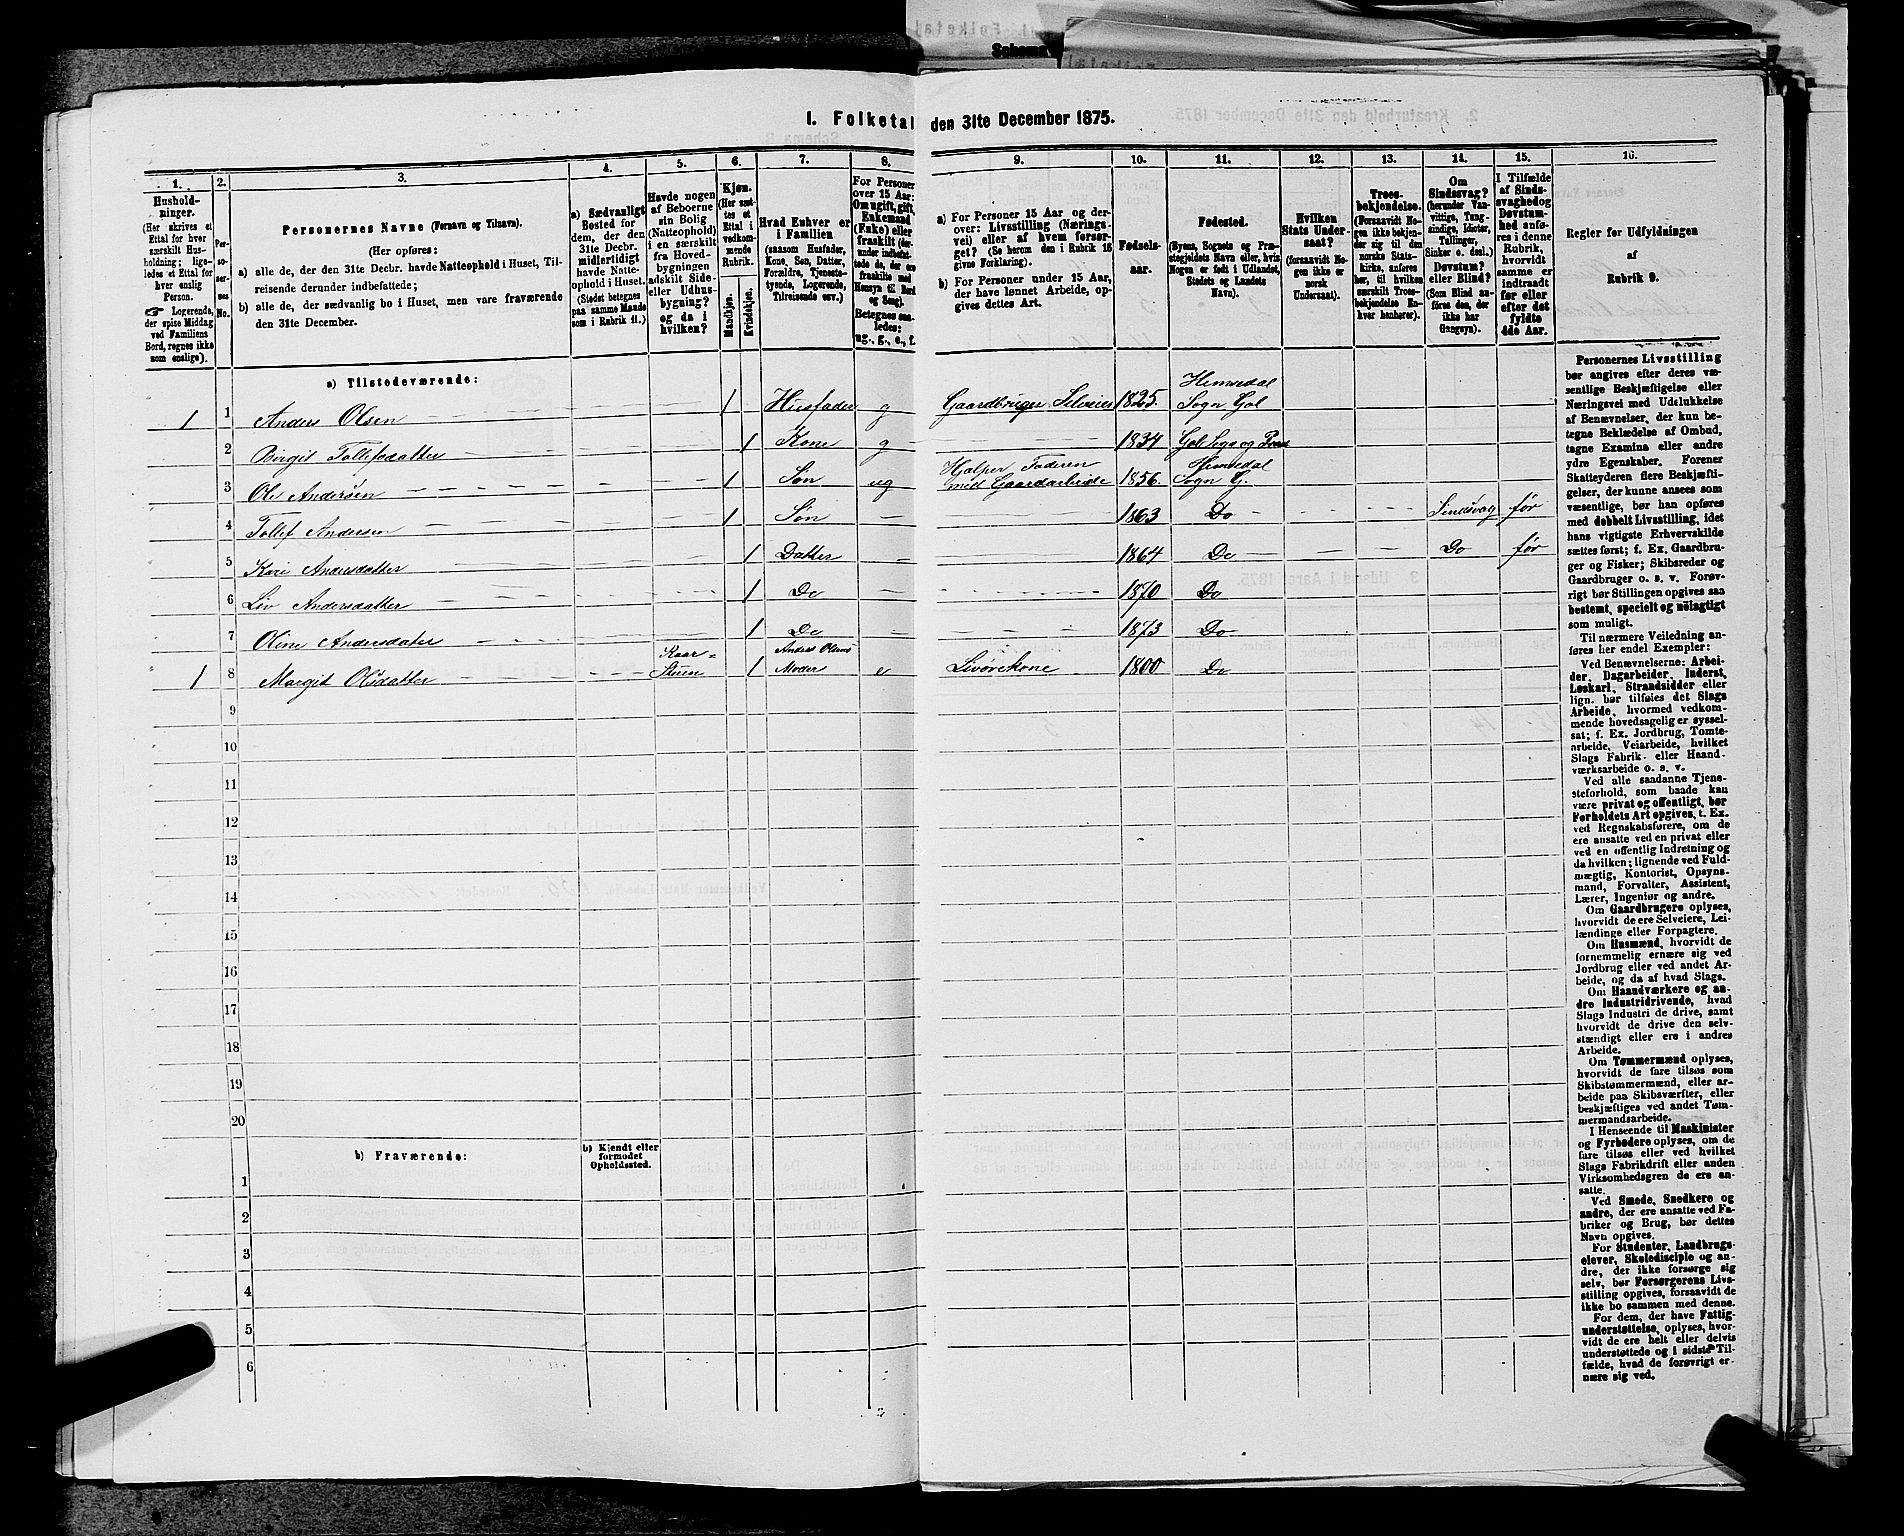 Schema
I. Folketal den 31te December 1875.
1. 2. 3. 4. 5. 6. 7. 8. 9. 10. 11. 12. 13. 14. 15. 16.
Hushold-
ninger.
(Her skrives et
Ettal for hver
særskilt Hus-
holdning; lige-
ledes et Ettal for
hver enslig
Person.
☞ Logerende,
der spise Middag
ved Familiens
Bord, regnes ikke
som enslige).
Per-
so-
ner-
nes
No.
Personernes Navne (Fornavn og Tilnavn).
(Her opføres:
a) alle de, der den 31te Decbr. havde Natteophold i Huset, Til-
reisende derunder indbefattede;
b) alle de, der sædvanlig bo i Huset, men vare fraværende
den 31te December.
a) Sædvanligt
Bosted for
dem, der den
31te Decbr.
midlertidigt
havde Natte-
ophold i Huset.
(Stedet betegnes
paa samme Maade
som i Rubrik 11.)
Havde nogen
af Beboerne
sin Bolig
(Natteophold)
i en særskilt
fra Hoved-
bygningen
adskilt Side-
eller Udhus-
bygning?
og da i
hvilken?
Kjøn.
(Her sæt-
tes et
Ettal i
vedkom-
mende
Rubrik.
Mandkjøn.
Kvindekjøn.
Hvad Enhver er
i Familien
(saasom Husfader,
Kone, Søn, Datter,
Forældre, Tjeneste-
tyende, Logerende,
Tilreisende osv.)
For Personer
over 15 Aar:
Om ugift, gift,
Enkemand
(Enke) eller
fraskilt (der-
under indbefat-
tede de, der ere
fraskilte med
Hensyn til Bord
og Seng).
Betegnes saa-
ledes:
ug., g., e., f.
a) For Personer 15 Aar og der-
over: Livsstilling (Nærings-
vei) eller af hvem forsør-
get? (Se herom den i Rubrik 16
givne Forklaring).
b) For Personer under 15 Aar,
der have lønnet Arbeide, op-
gives dettes Art.
Fødsels-
aar.
Fødested.
(Byens, Sognets og Præ-
stegjeldets Navn eller, hvis
Nogen er født i Udlandet,
Stedets og Landets
Navn).
Hvilken
Stats Under-
saat?
(forsaavidt No-
gen ikke er
norsk
Undersaat).
Troes-
bekjendelse.
(Forsaavidt No-
gen ikke bekjen-
der sig til den
norske Stats-
kirke, anføres
her, til hvilken
særskilt Troes-
bekjendelse En-
hver henhører).
Om
Sindssvag?
(herunder Van-
vittige, Tung-
sindige, Idioter,
Tullinger,
Sinker o. desl.)
Døvstum?
eller Blind?
(Som Blind an-
føres den, der
ikke har
Gangsyn).
I Tilfælde
af Sinds-
svaghed og
Døvstum-
hed anfø-
res i denne
Rubrik,
hvorvidt
samme er
indtraadt
før eller
efter det
fyldte
4de Aar.
Regler for Udfyldningen
af
Rubrik 9.
a) Tilstedeværende:
1 1 Anders Olsen 1 Husfader g Gaardbruger Selveier 1825. Hemsedal Sogn Gol
2 Birgit Tollefsdatter 1 Kone g 1834 Gol Sogn og
3 Ole Andersen 1 Søn ug Hjelper Faderen med Gaardarbeide 1856. Hemsedal Sogn G.
4 Tollef Andersen 1 Søn 1863 Do Sindssvag før
5 Kari Andersdatter 1 Datter 1864 Do Do før
6 Liv Andersdatter 1 Do 1870 Do
7 Oline Andersdatter 1 Do 1873 Do
1 8 Margit Olsdatter Kaar-Stuen 1 Anders Olsens Moder e Livørekone 1800 Do
9
10
11
12
13
14
15
16
17
18
19
20
b) Fraværende:
b) Kjendt eller
formodet
Opholdssted.
1
2
3
4
5
6
Personernes Livsstilling
bør angives efter deres væ-
sentlige Beskjæftigelse eller
Næringsvei med Udelukkelse
af Benævnelser, der kun be-
tegne Beklædelse af Ombud,
tagne Examina eller andre
ydre Egenskaber. Forener
Skatteyderen flere Beskjæfti-
gelser, der kunne ansees som
væsentlige, bør han opføres
med dobbelt Livsstilling, idet
hans vigtigste Erhvervskilde
sættes først; f. Ex. Gaardbru-
ger og Fisker; Skibsreder og
Gaardbruger o. s. v. Forøv-
rigt bør Stillingen opgives saa
bestemt, specielt og nøiagtigt
som muligt.
Til nærmere Veiledning an-
føres her endel Exempler:
Ved Benævnelserne: Arbei-
der, Dagarbeider, Inderst,
Løskarl, Strandsidder eller
lign. bør tilføies det Slags
Arbeide, hvormed vedkom-
mende hovedsagelig er syssel-
sat; f. Ex. Jordbrug, Tomte-
arbeide, Veiarbeide, hvilket
Slags Fabrik- eller Haand-
værksarbeide o. s. v.
Ved alle saadanne Tjene-
steforhold, som baade kan
være privat og offentligt, bør
Forholdets Art opgives, t. Ex.
ved Regnskabsførere, om de
ere ansatte ved en privat eller
ved en offentlig Indretning og
da hvilken; lignende ved Fuld-
mægtig, Kontorist, Opsyns-
mand, Forvalter, Assistent,
Lærer, Ingeniør og andre.
Om Gaardbrugere oplyses,
hvorvidt de ere Selveiere, Lei-
lændinge eller Forpagtere.
Om Husmænd, hvorvidt de
fornemmelig ernære sig ved
Jordbrug eller ved andet Ar-
beide, og da af hvad Slags.
Om Haandværkere og an-
dre Industridrivende, hvad
Slags Industri de drive, samt
hvorvidt de drive den selv-
stændigt eller ere i andres
Arbeide.
Om Tømmermænd oplyses,
hvorvidt de fare tilsøs som
Skibstømmermænd, eller ar-
beide paa Skibsværfter, eller
beskjæftiges ved andet Tøm-
mermandsarbeide.
I Henseende til Maskinister
og Fyrbødere oplyses, om de
fare tilsøs eller ved hvilket
Slags Fabrikdrift eller anden
Virksomhedsgren de ere an-
satte.
Ved Smede, Snedkere og
andre, der ere ansatte ved Fa-
briker og Brug, bør dettes
Navn opgives.
For Studenter, Landbrugs-
elever, Skoledisciple og an-
dre, der ikke forsørge sig
selv, bør Forsørgerens Livs-
stilling opgives, forsaavidt de
ikke bo sammen med denne.
For dem, der have Fattig-
understøttelse, oplyses, hvor-
vidt de ere helt eller delvis
understøttede og i sidste Til-
fælde, hvad de forøvrigt er-
nære sig ved.